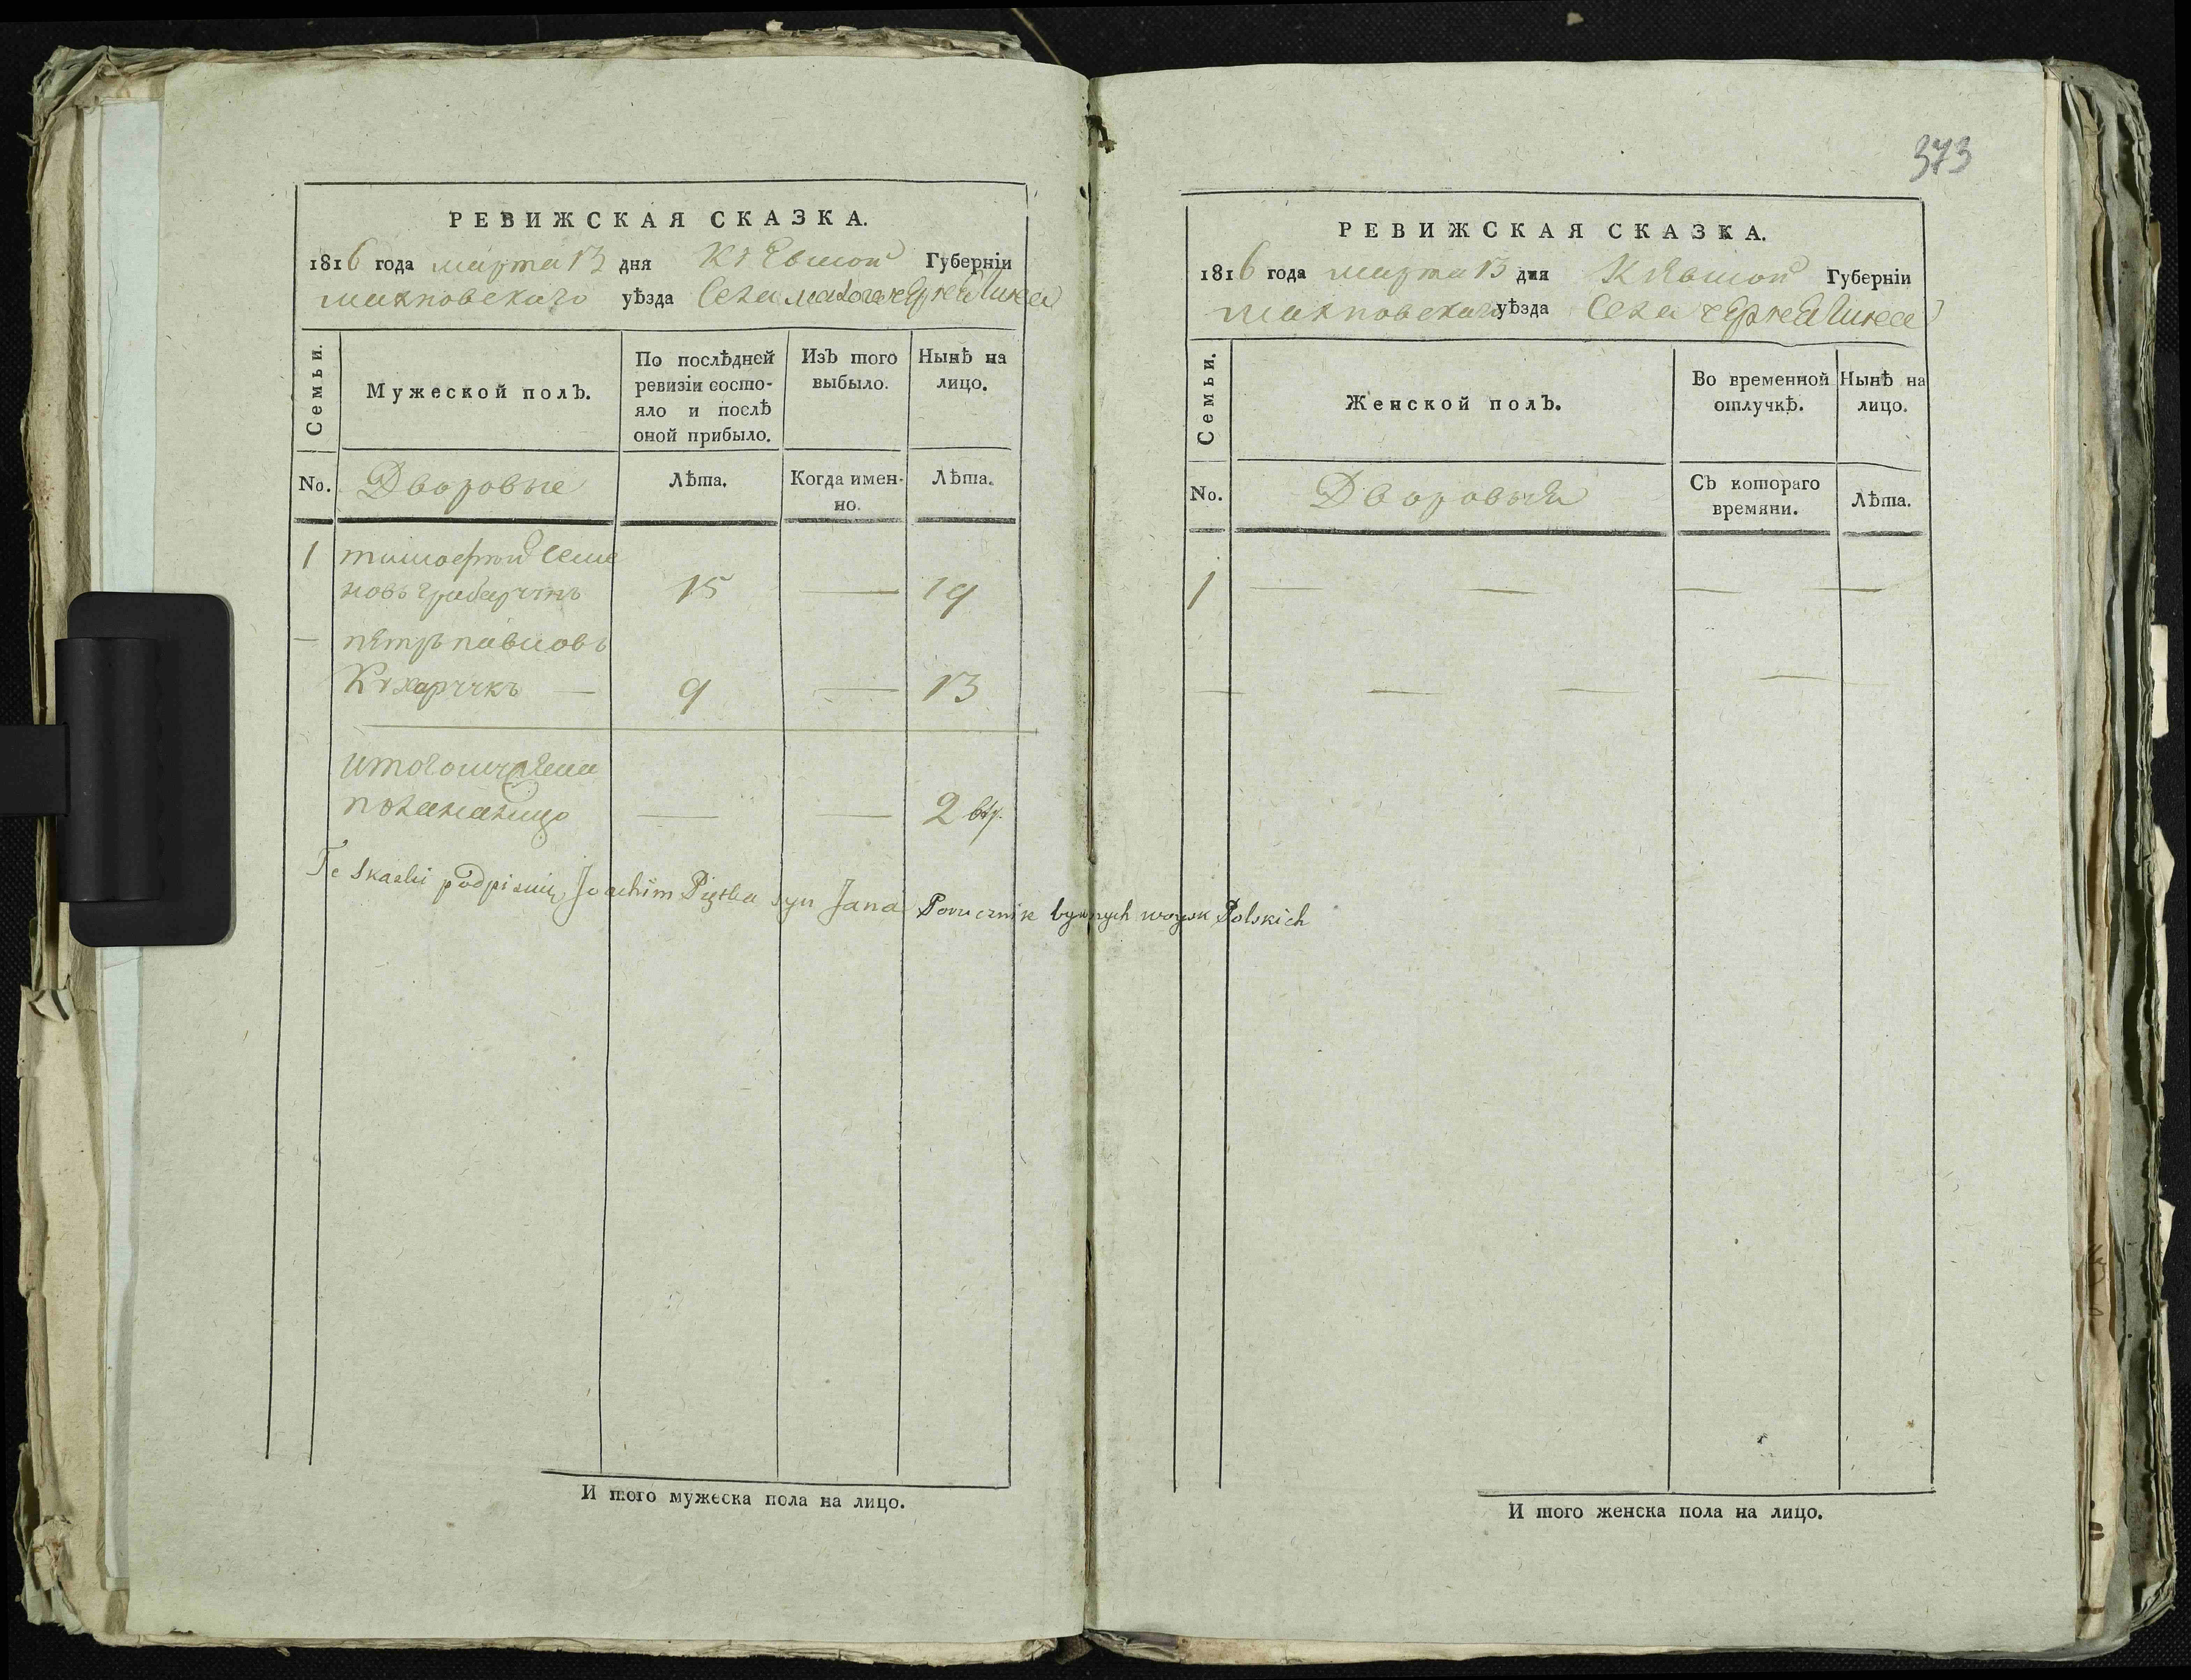 РЕВИЖСКАЯ СКАЗКА.
1816 года марта 13 дня Кіевской Губерніи
махновскаго уѣзда Села малого чернелинец
Семьи.
Мужеской полЪ.
По послѣдней ревизіи состояло и послѣ оной прибыло.
ИзЪ того выбыло.
Нынѣ на лицо.
No. Дворовые Лѣта. Когда именно. Лѣта.
1 тимофѣй Семе
новъ 15 — 19
— петръ павловъ
9 — 13
итого мужеска
пола на лицо — — 2
Te Skaski podpisuię Joachim syn Jana Porucznik bywszych woysk Polskich
И того мужеска пола на лицо.
373
РЕВИЖСКАЯ СКАЗКА.
1816 года марта 13 дня Кіевской Губерніи
махновскаго уѣзда Села чернелинец
Семьи.
Женской полЪ.
Во временной отлучкѣ.
Нынѣ на лицо.
No. Дворовыя СЪ котораго времяни. Лѣта.
1 — — — —
— — — —
И того женска пола на лицо.